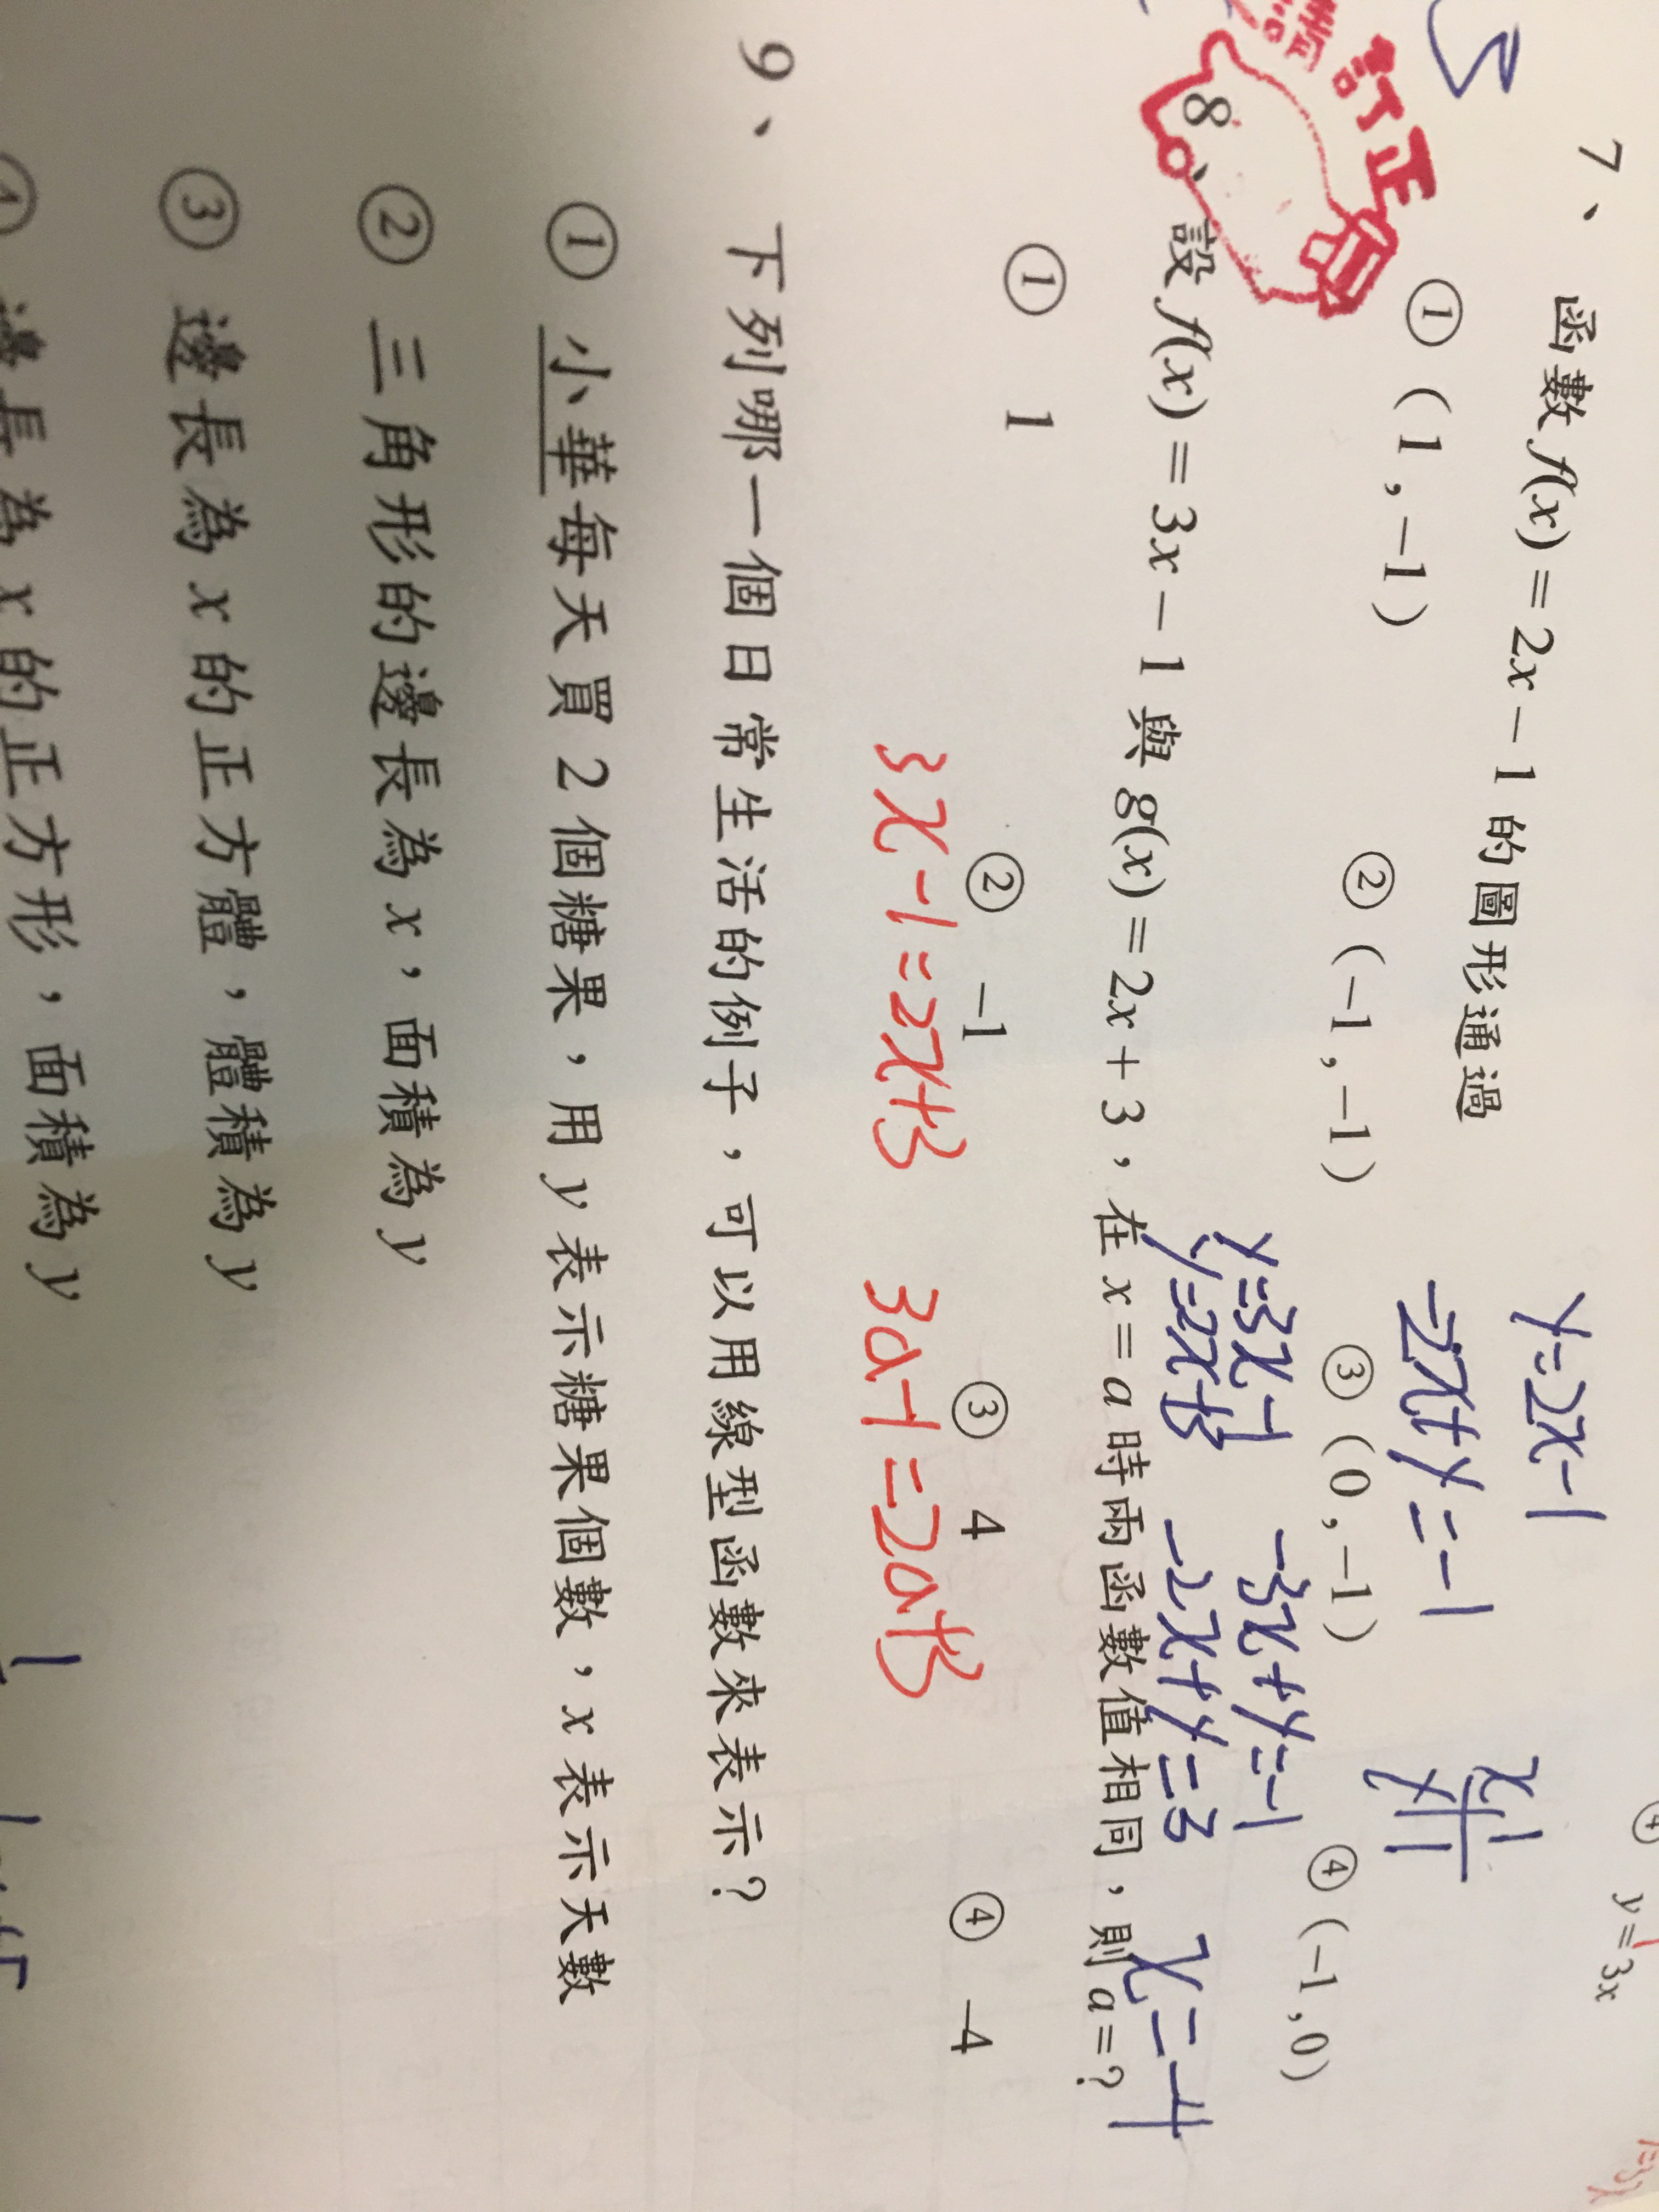 ④ y=3x
7、函數 f(x)=2x−1 的圖形通過
y=2x-1
-2x+y=-1
① (1,−1) ② (−1,−1) ③ (0,−1) ④ (−1,0)
請訂正
8、設 f(x)=3x−1 與 g(x)=2x+3，在 x=a 時兩函數值相同，則 a=?
y=3x-1 -3x+y=-1
y=2x+3 -2x+y=3
x=-4
① 1 ② −1 ③ 4 ④ −4
3x-1=2x+3 3a-1=2a+3
9、下列哪一個日常生活的例子，可以用線型函數來表示？
① 小華每天買 2 個糖果，用 y 表示糖果個數，x 表示天數
② 三角形的邊長為 x，面積為 y
③ 邊長為 x 的正方體，體積為 y
④ 邊長為 x 的正方形，面積為 y